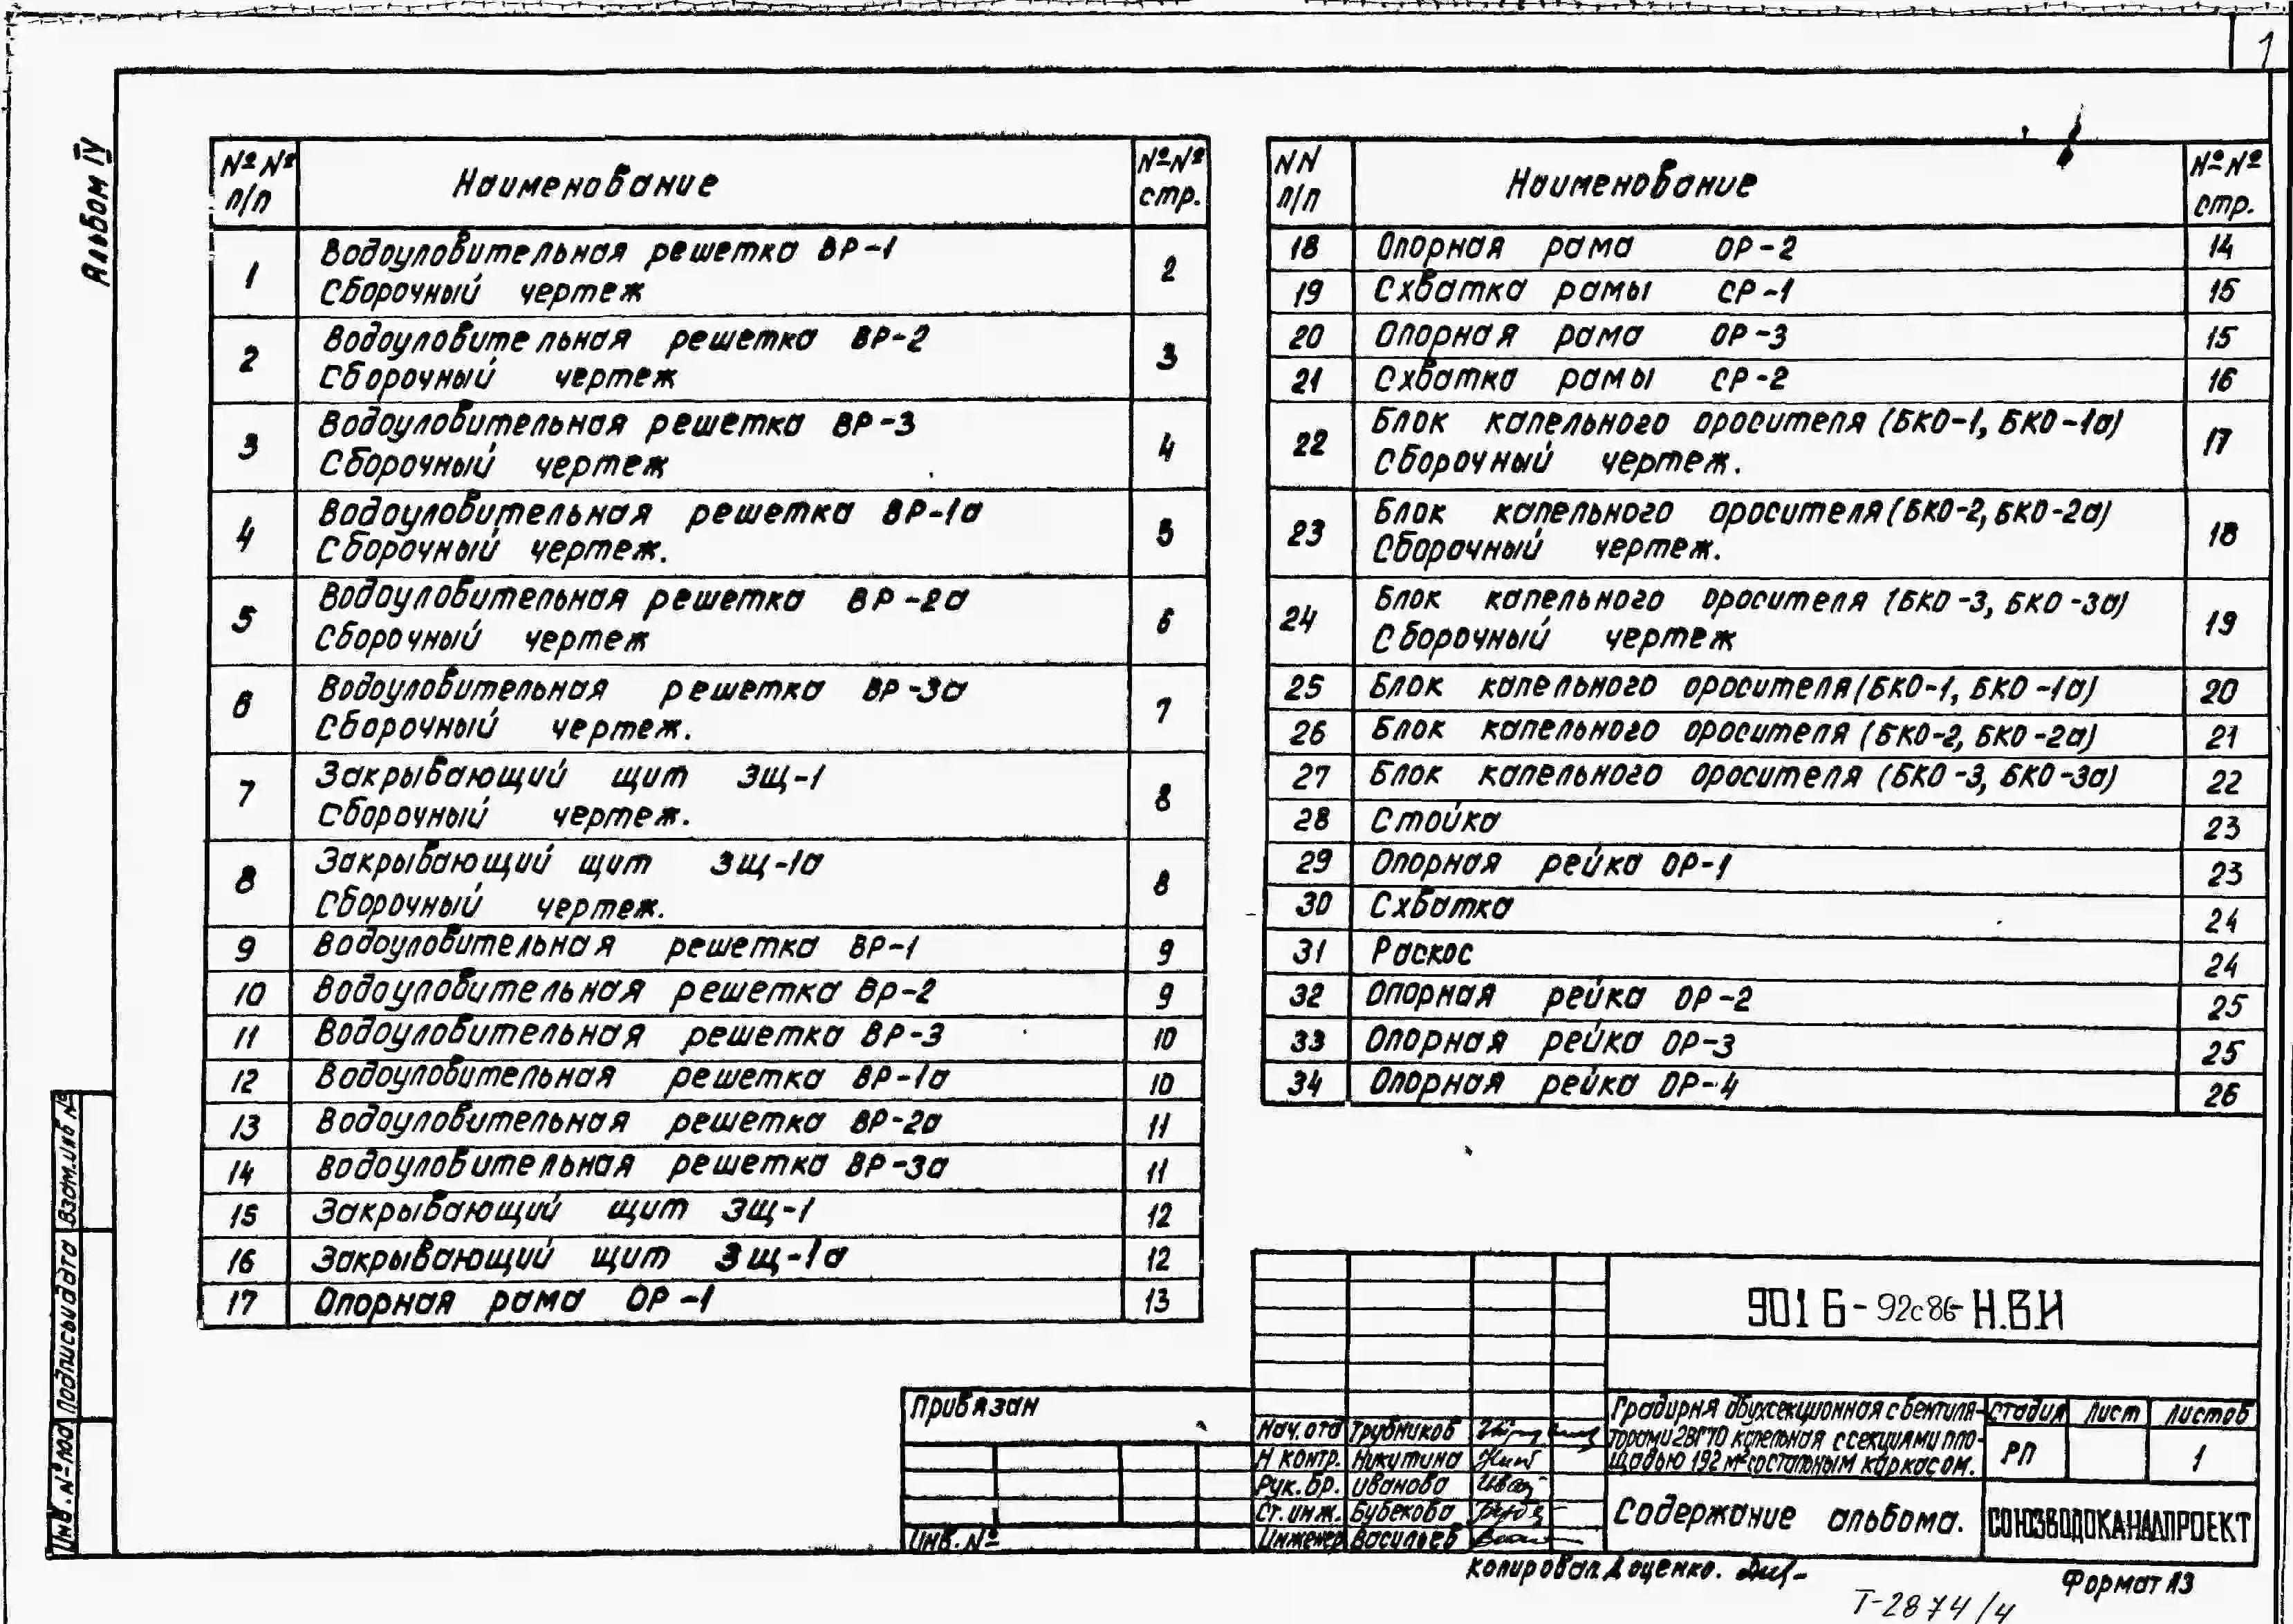 1
Альбом IV
№№ п/п Наименование №№ стр.
1 Водоуловительная решетка ВР-1 2
Сборочный чертеж
2 Водоуловительная решетка ВР-2 3
Сборочный чертеж
3 Водоуловительная решетка ВР-3 4
Сборочный чертеж
4 Водоуловительная решетка ВР-1а 5
Сборочный чертеж.
5 Водоуловительная решетка ВР-2а 6
Сборочный чертеж
6 Водоуловительная решетка ВР-3а 7
Сборочный чертеж.
7 Закрывающий щит ЗЩ-1 8
Сборочный чертеж.
8 Закрывающий щит ЗЩ-1а 8
Сборочный чертеж.
9 Водоуловительная решетка ВР-1 9
10 Водоуловительная решетка Вр-2 9
11 Водоуловительная решетка ВР-3 10
12 Водоуловительная решетка ВР-1а 10
13 Водоуловительная решетка ВР-2а 11
14 Водоуловительная решетка ВР-3а 11
15 Закрывающий щит ЗЩ-1 12
16 Закрывающий щит ЗЩ-1а 12
17 Опорная рама ОР-1 13
NN п/п Наименование №№ стр.
18 Опорная рама ОР-2 14
19 Схватка рамы СР-1 15
20 Опорная рама ОР-3 15
21 Схватка рамы СР-2 16
22 Блок капельного оросителя (БКО-1, БКО-1а) 17
Сборочный чертеж.
23 Блок капельного оросителя (БКО-2, БКО-2а) 18
Сборочный чертеж.
24 Блок капельного оросителя (БКО-3, БКО-3а) 19
Сборочный чертеж
25 Блок капельного оросителя (БКО-1, БКО-1а) 20
26 Блок капельного оросителя (БКО-2, БКО-2а) 21
27 Блок капельного оросителя (БКО-3, БКО-3а) 22
28 Стойка 23
29 Опорная рейка ОР-1 23
30 Схватка 24
31 Раскос 24
32 Опорная рейка ОР-2 25
33 Опорная рейка ОР-3 25
34 Опорная рейка ОР-4 26
Взам.инв №
Подпись и дата
Инв. № под
901 6-92с86-Н.ВИ
Привязан
Инв. №
Нач.отд Трубников
Н контр. Никитина
Рук.бр. Иванова
Ст.инж. Бубекова
Инженер Васильев
Градирня двухсекционная с вентиля-
торами 2ВГ70 капельная с секциями пло-
щадью 192 м² со стальным каркасом.
Стадия Лист Листов
РП 1
Содержание альбома.
СОЮЗВОДОКАНАЛПРОЕКТ
Копировал Доценко.
Формат А3
Т-2874/4